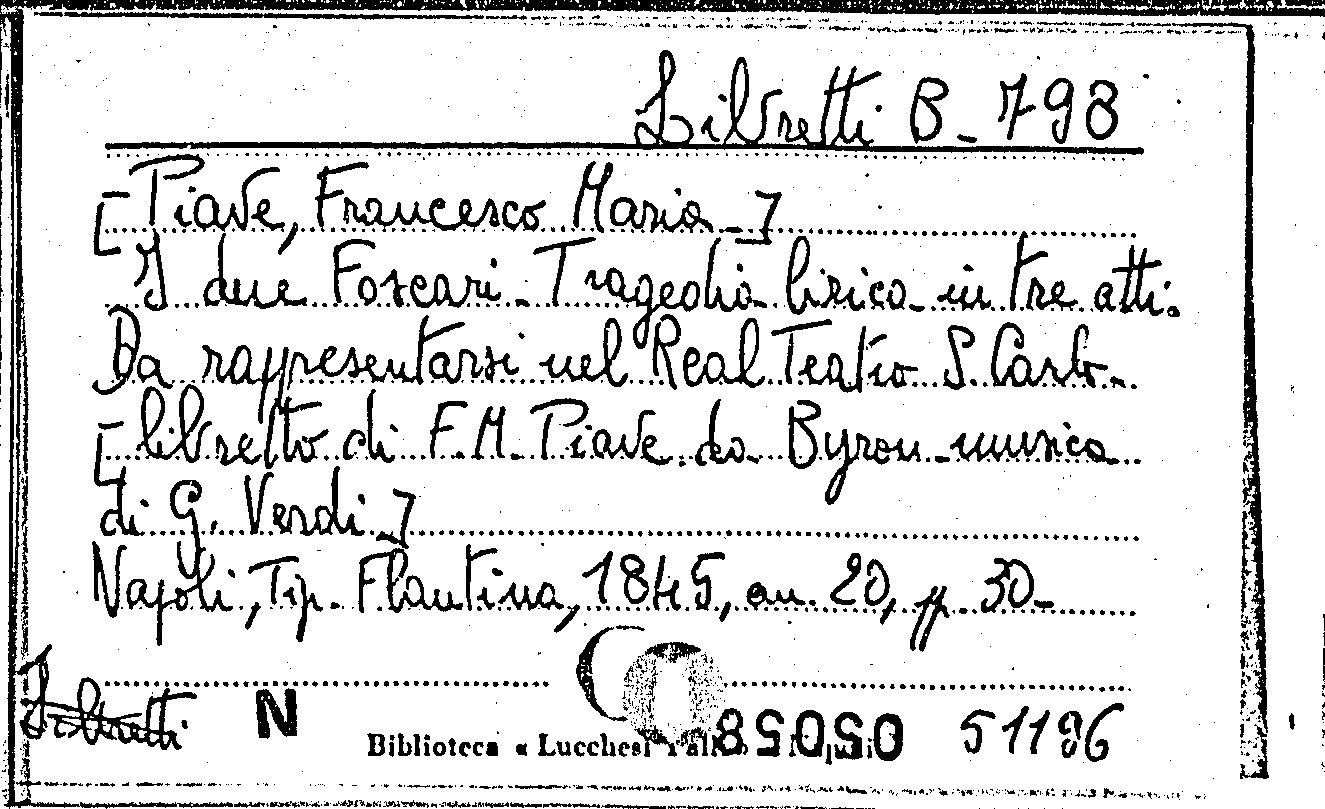 Libretti B - 798
[Piave, Francesco Maria -]
I due Foscari - Tragedia lirica in tre atti.
Da rappresentarsi nel Real Teatro S. Carlo -
[libretto di F.M. Piave da Byron - musica
di G. Verdi -]
Napoli, Tip. Flautina, 1845, cm. 20, pp. 30 -
Libretti N
Biblioteca « Lucchesi 85058 51196